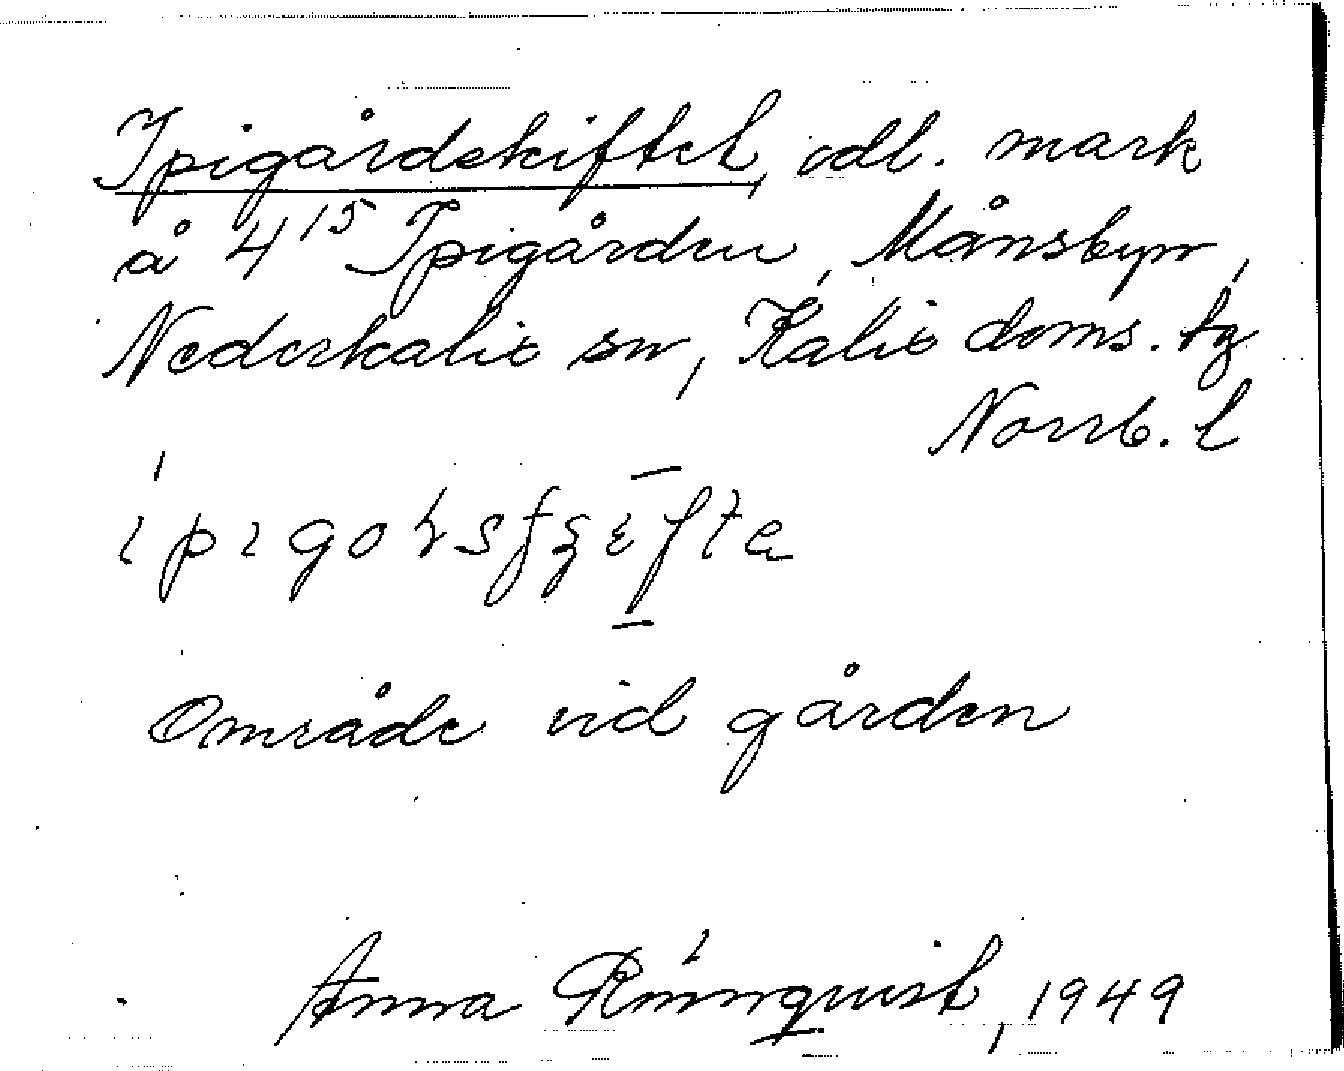 Ipigårdskiftet, odl. mark
å 4¹⁵ Ipigården, Månsbyn,
Nederkalix sn, Kalix doms. tg
Norrb. l
Område vid gården
Anna Rönnquist, 1949